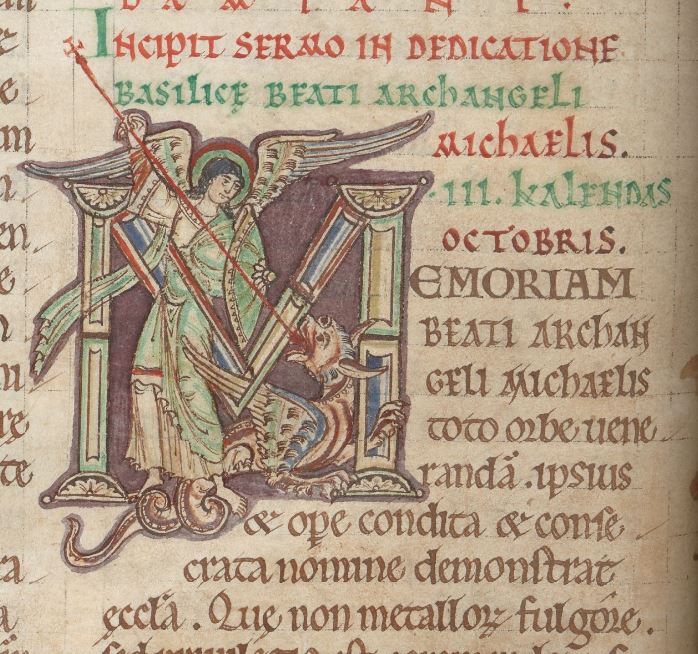 DAMIANI.
INCIPIT SERMO IN DEDICATIONE
BASILICĘ BEATI ARCHANGELI
MICHAELIS.
·III. KALENDAS
OCTOBRIS.
MEMORIAM
BEATI ARCHAN
GELI MICHAELIS
toto orbe uene
randā .ipsius
& ope condita & conse
crata nomine demonstrat
eccl̄a . Que non metalloꝝ fulgore .